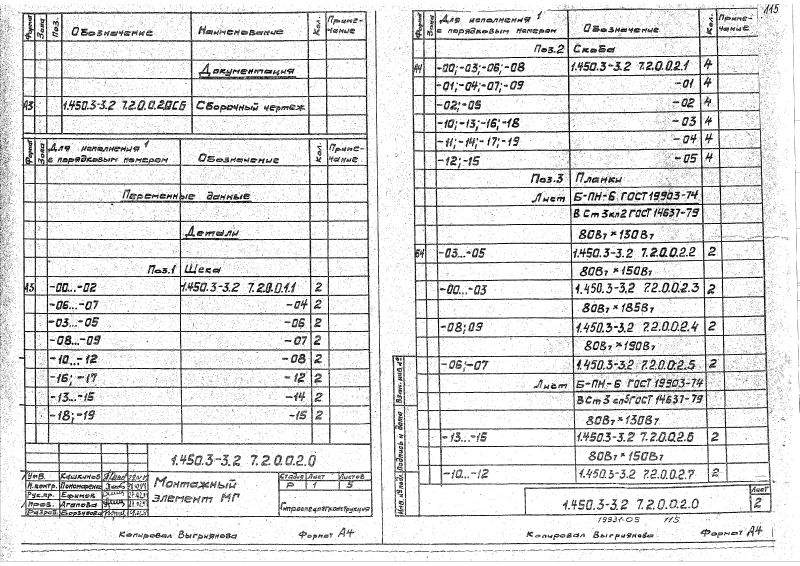 Формат Зона Поз. Обозначение Наименование Кол. Примечание
Документация
А3 1.450.3-3.2 7.2.0.0.2.0СБ Сборочный чертеж
Формат Зона Для исполнения 1 с порядковым номером Обозначение Кол. Примечание
Переменные данные
Детали
Поз.1 Щека
А3 -00...-02 1.450.3-3.2 7.2.0.0.1.1 2
-06...-07 -04 2
-03...-05 -06 2
-08...-09 -07 2
-10...-12 -08 2
-16; -17 -12 2
-13...-15 -14 2
-18;-19 -15 2
1.450.3-3.2 7.2.0.0.2.0
Утв. Кашкинов
Н.контр. Пономаренко
Рук.пр. Ефимов
Пров. Агапова
Разраб. Борзунова
Монтажный элемент МГ
Стадия Лист Листов
Р 1 5
Гипроспецлегконструкция
Копировал Выгриянова Формат А4
115
Формат Зона Для исполнения 1 с порядковым номером Обозначение Кол. Примечание
Поз.2 Скоба
А4 -00;-03;-06;-08 1.450.3-3.2 7.2.0.0.2.1 4
-01;-04;-07;-09 -01 4
-02;-05 -02 4
-10;-13;-16;-18 -03 4
-11;-14;-17;-19 -04 4
-12;-15 -05 4
Поз.3 Планки
Лист Б-ПН-6 ГОСТ 19903-74
ВСт3кп2 ГОСТ 14637-79
80В7 × 130В7
64 -03...-05 1.450.3-3.2 7.2.0.0.2.2 2
80В7 × 150В7
-00...-03 1.450.3-3.2 7.2.0.0.2.3 2
80В7 × 185В7
-08;09 1.450.3-3.2 7.2.0.0.2.4 2
80В7 × 190В7
-06;-07 1.450.3-3.2 7.2.0.0.2.5 2
Лист Б-ПН-6 ГОСТ 19903-74
ВСт3сп5 ГОСТ 14637-79
80В7 × 130В7
-13...-15 1.450.3-3.2 7.2.0.0.2.6 2
80В7 × 150В7
-10...-12 1.450.3-3.2 7.2.0.0.2.7 2
Инв.№подл. Подпись и дата Взам.инв.№
1.450.3-3.2 7.2.0.0.2.0
Лист
2
19931-05 115
Копировал Выгриянова Формат А4